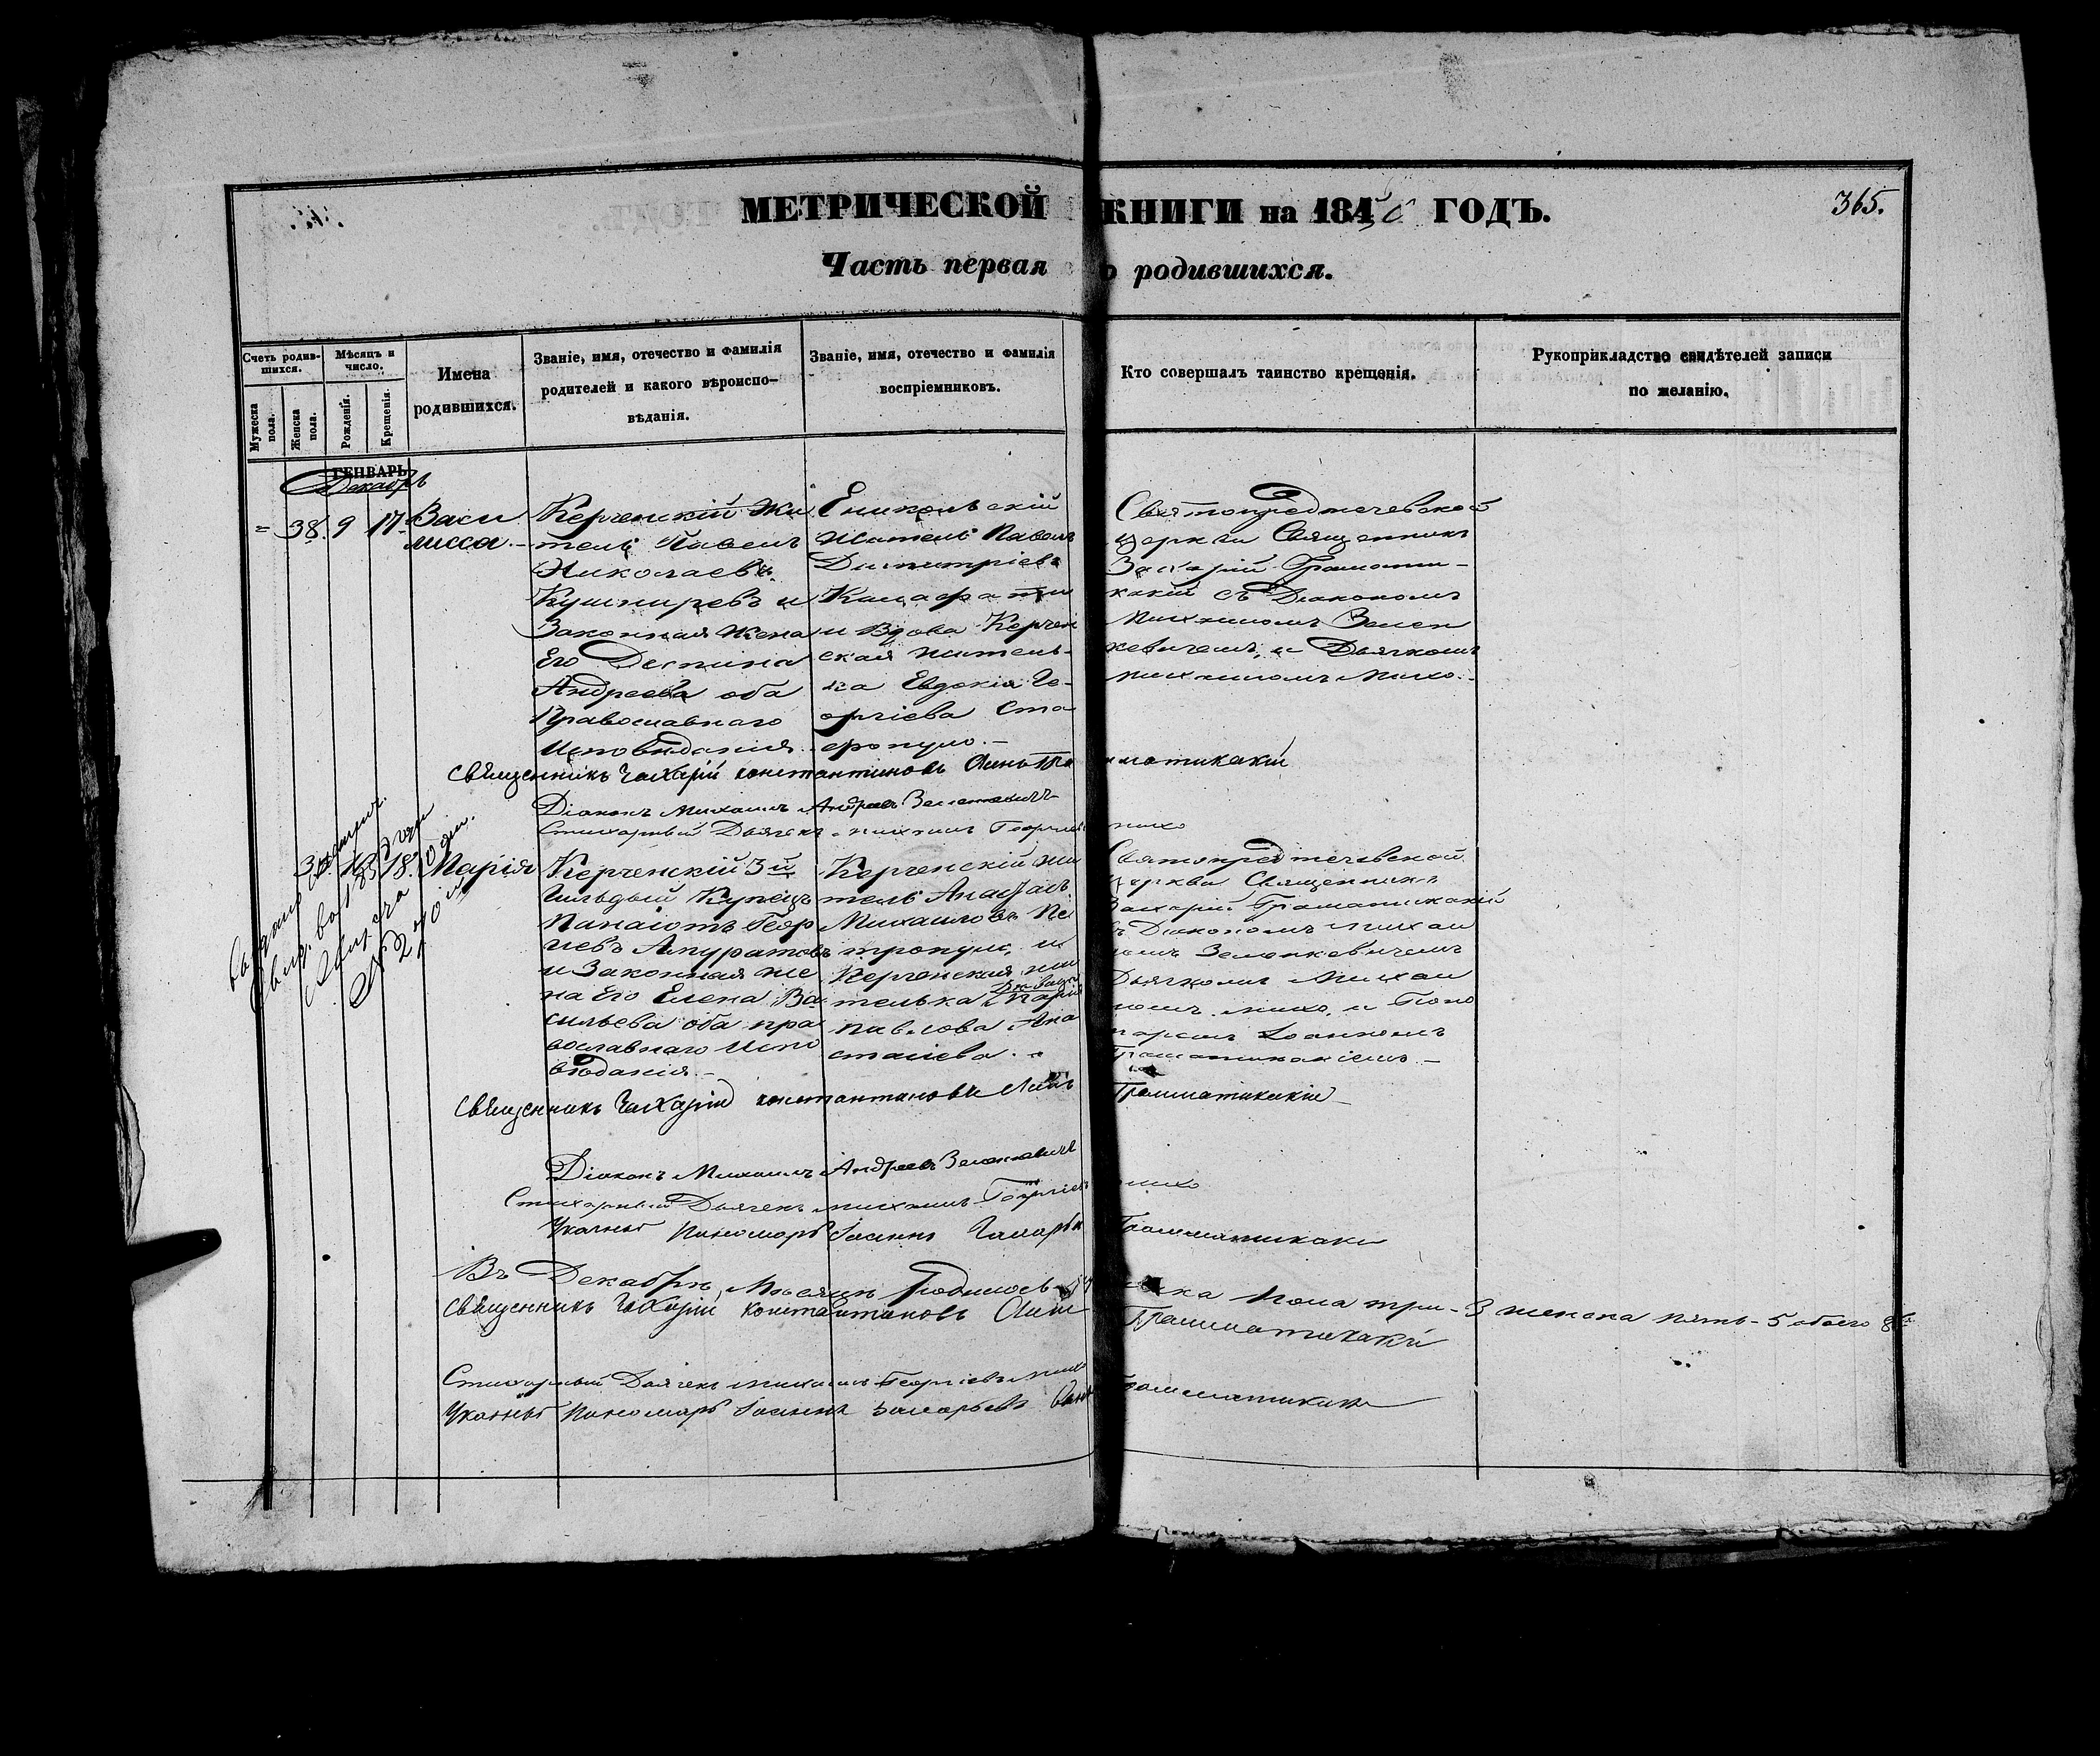 МЕТРИЧЕСКОЙ КНИГИ на 1850 ГОДЪ.
365.
Часть первая о родившихся.
Счетъ родив-
шихся.
Мужеска пола.
Женска пола.
Мѣсяцъ и
число.
Рожденія.
Крещенія.
Имена
родившихся.
Званіе, имя, отечество и фамилія
родителей и какого вѣроиспо-
вѣданія.
Званіе, имя, отечество и фамилія
воспріемниковъ.
Кто совершалъ таинство крещенія.
Рукоприкладство свидѣтелей записи
по желанію.
ГЕНВАРЬ
Декабрь
= 38. 9 17
Васи
лисса.-
Керченскій Жи
тель Павелъ
Николаевъ
Кушниревъ и
Законная Жена
Его Деспина
Андреева оба
Православнаго
Исповѣданія
Еникольскій
Житель Павелъ
Димитріевъ
и Вдова Керчен
ская житель-
ка Евдокія Ге-
оргіева Ста
вропуло.-
Святопредтечевской
церкви Священникъ
Захарій Грамати-
какій съ Діакономъ
Михаиломъ Зелен
кевичемъ, и Дьячкомъ
Михаиломъ Михо.-
Священникъ Захарій Константиновъ Грамматикакій
Діаконъ Михаилъ Андреевъ Зеленкевичъ
Стихарный Дьячекъ Михаилъ Георгіевъ Михо
18.
Марія
Керченскій 3й
Гильдый Купецъ
Панаіотъ Геор
гіевъ Амуратовъ
и Законная Же
на Его Елена Ва
сильева оба пра
вославнаго Испо
вѣданія.-
Керченскій Жи
тель
Михаиловъ Пе
тропуло, и
Керченская жи
телька Марія
Павлова Ана
стасіева.
Святопредтечевской
Церкви Священникъ
Захарій Граматикакій
съ Діакономъ Михаи
ломъ Зеленкевичемъ
Дьячкомъ Михаи
ломъ Михо, и Поно
маремъ Іоанномъ
Граматикакіемъ.-
Священникъ Захарій Константиновъ Грамматикакій
Діаконъ Михаилъ Андреевъ Зеленкевичъ
Стихарный Дьячекъ Михаилъ Георгіевъ Михо
Указный Пономарь Іоаннъ Грамматикаки
Въ Декабрѣ Мѣсяцѣ Родилось мужеска пола три - 3 женска пять - 5 обоего 8
Священникъ Захарій Константиновъ Грамматикакій
Стихарный Дьячекъ Михаилъ Георгіевъ Михо
Указный Пономарь Іоаннъ Захарьевъ Грамматикаки